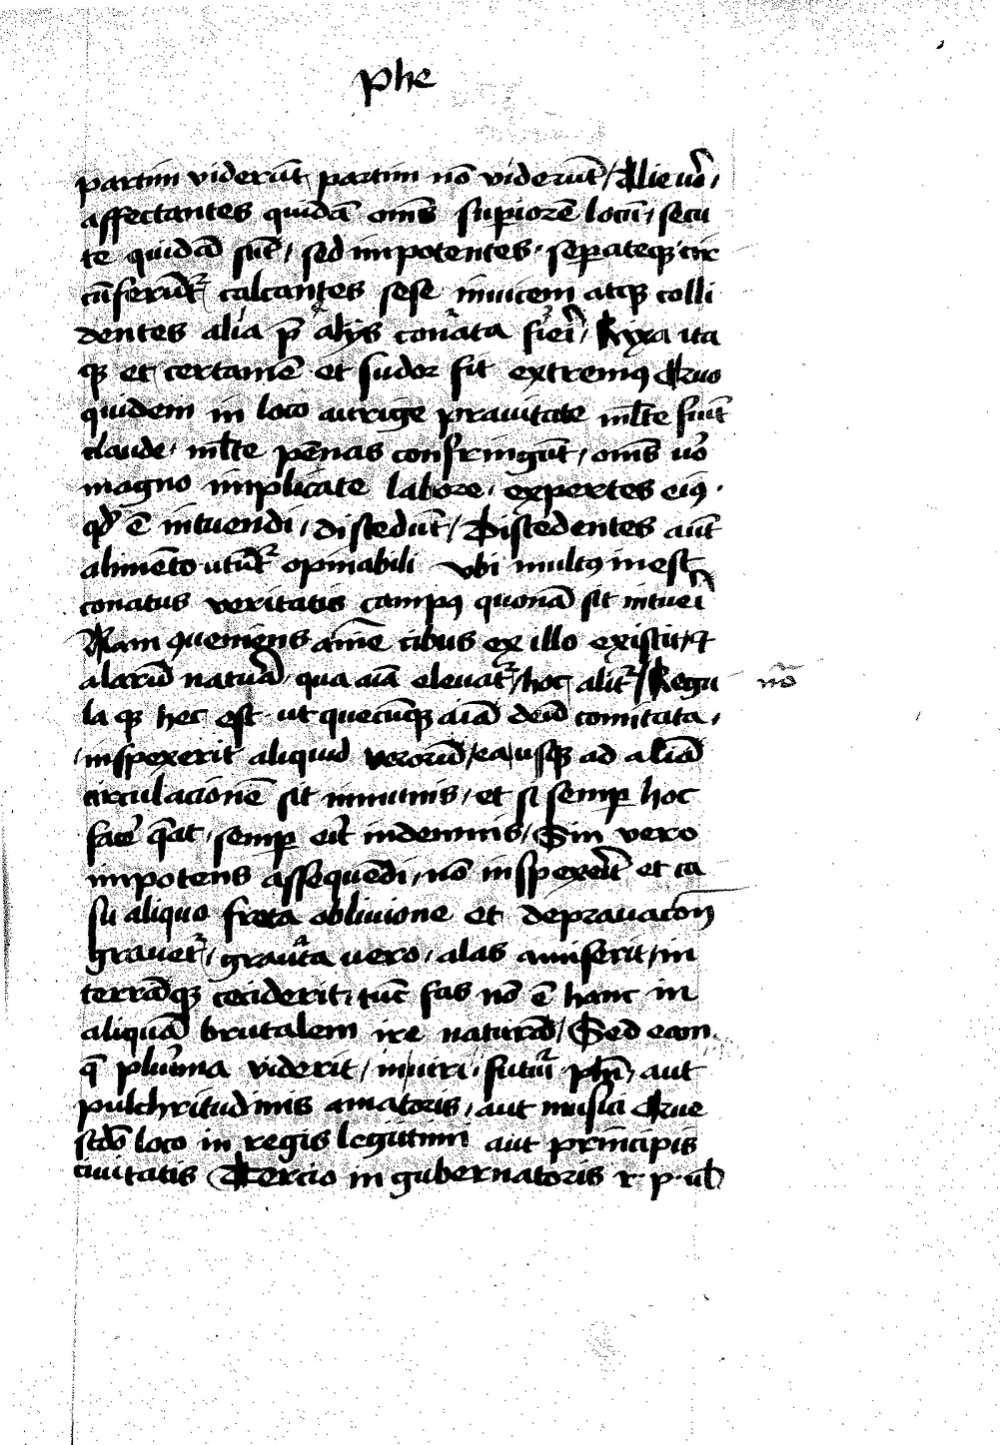 phe
partim viderūt partim nō viderūt / Alie uo᷒ /
affectantes quidā om̄s supiorē locū / secu
te quidā sūt / sed impotentes · sepateqꝫ cir
cūferūt᷑ calcantes sese inuicem atqꝫ colli
dentes alia p̄ alys conata fieri / Rixa ita
qꝫ et certamē et sudor fit extremꝰ Quo
quidem in loco aurige prauitate ml̄te fiūt
claude · ml̄te pēnas confringūt / om̄s uo᷒
magno implicate labore · expertes eiꝰ ·
qd̓ ē intuendi / discedūt / Discedentes aūt
alimēto utūt᷑ opinabili Vbi multꝰ inest
conatus veritatis campꝰ quonā sit intueri
Nam ꝯueniens aīe cibus ex illo existit / et
alarū natura / qua aīa eleuat᷑ / hoc alit᷑ / Regu
nō
la qꝫ hec est · ut quecūqꝫ aīa deū comitata /
inspexerit aliquid verorū / ea usqꝫ ad aliā
circulacionē sit immunis / et si semp hoc
face᷒ q̄at / semp erit indemnis / Sin vero
impotens assequēdi / nō inspexerit et ca
su aliquo freta obliuione et deprauacōn
grauet᷑ / grauata vero / alas amiserit / in
terrāqꝫ ceciderit / tūc fas nō ē hanc in
aliquā brutalem ire naturā / Sed eam
q̄ plurima viderit / in uiri · futuri · phī / aut
pulchritudinis amatoris / aut musici Que
scdō loco in regis legittimi aut principis
ciuitatis Tercio in gubernatoris r · p · ul̄